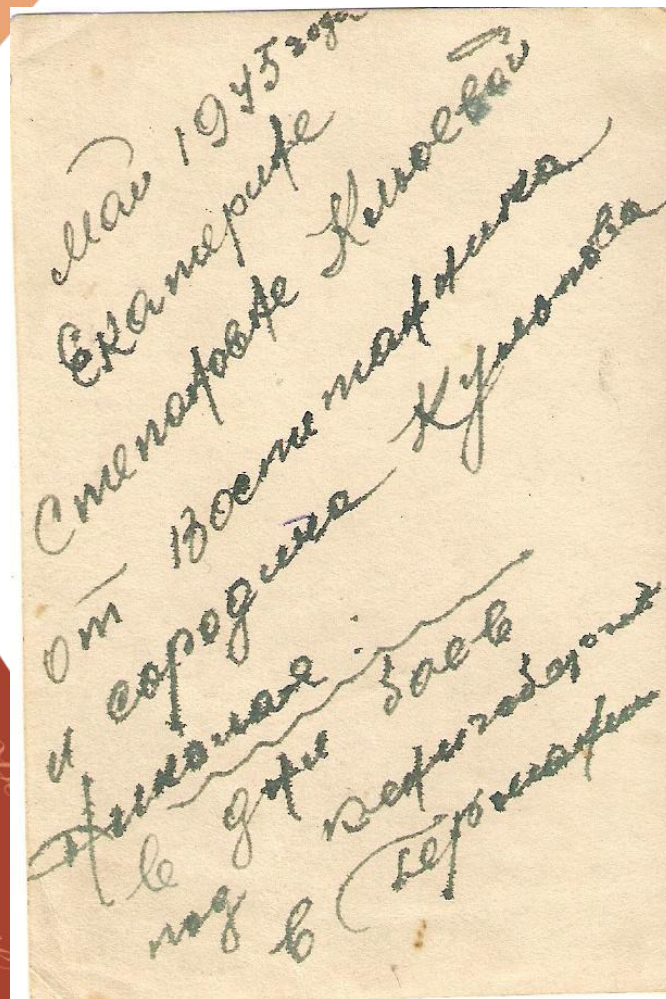 Май 1945 года
Екатерине
Степановне Клюевой
от воспитанника
и сородича Кулюпова
Николая.
в дни боев
под Кенигсбергом
в Германии